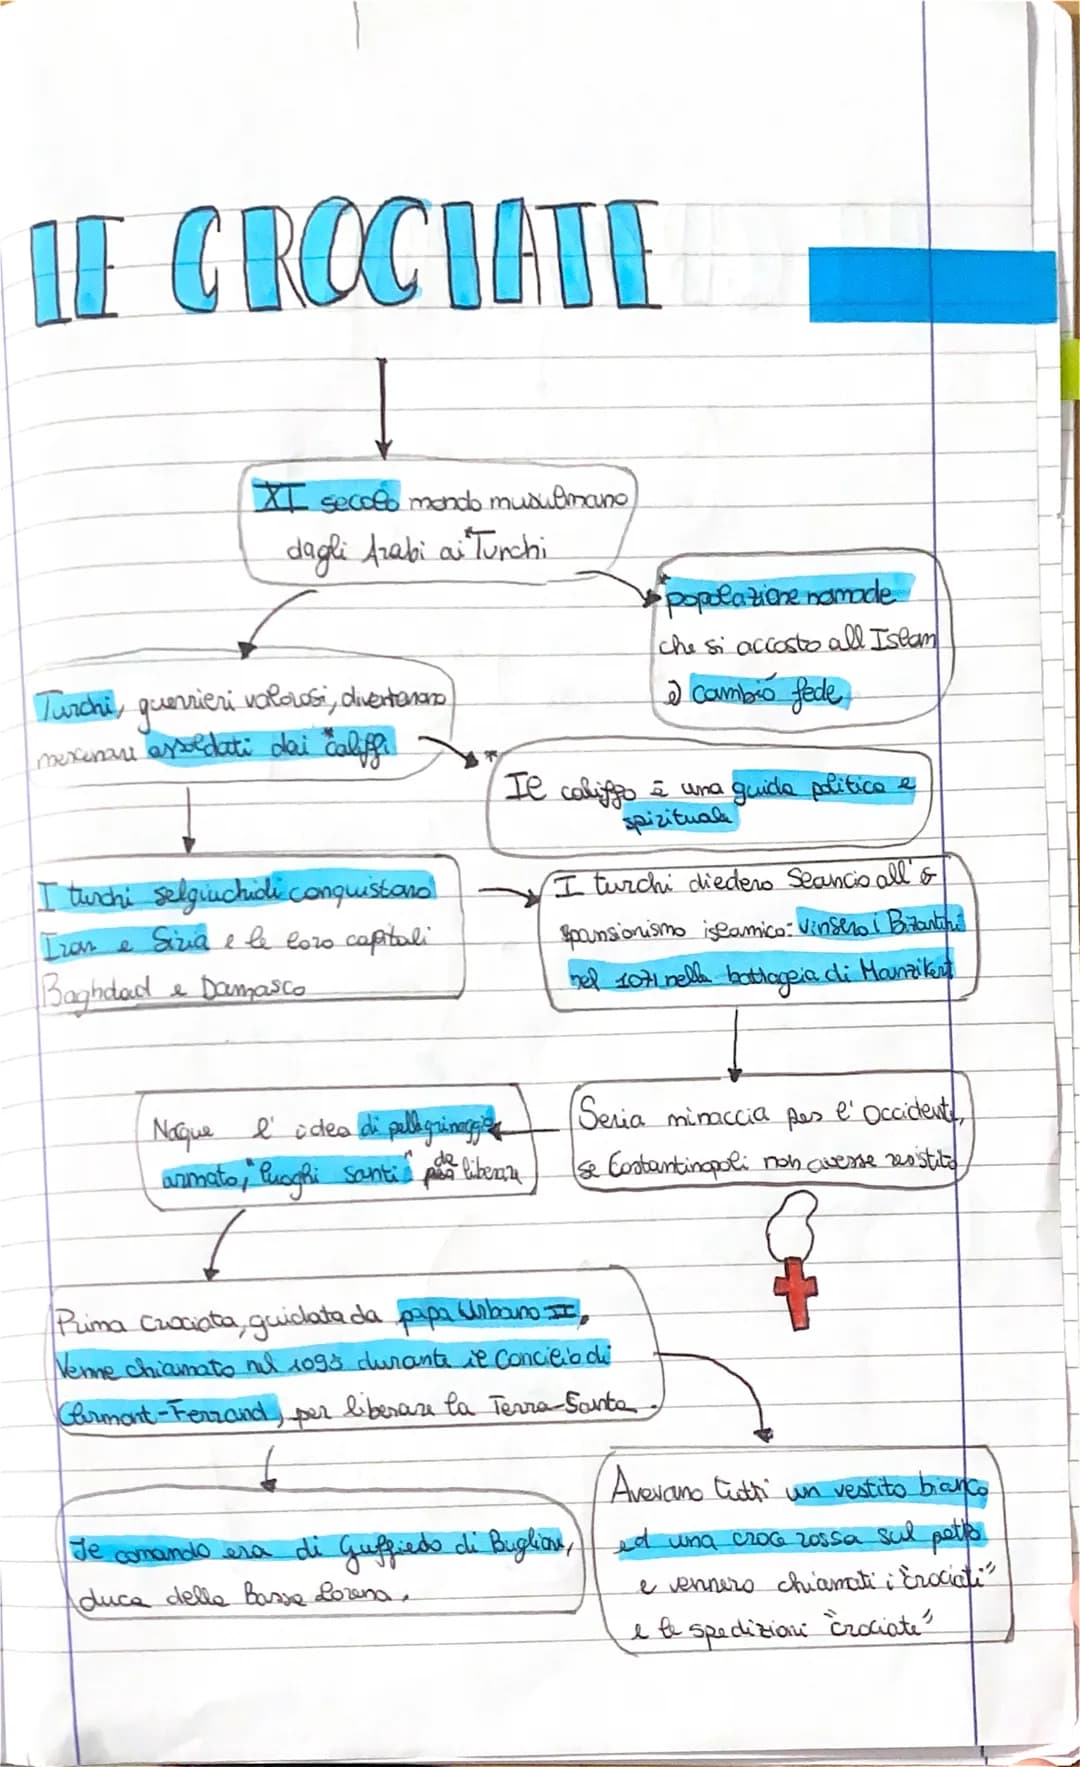 LE CROCIATE
XI secolo mondo musulmano
dagli Arabi ai *Turchi
*popolazione nomade
che si accostò all Islam
e cambiò fede
Turchi, guerrieri valorosi, diventarono
mercenari assoldati dai *califfi
* Il califfo è una guida politica e
spirituale
I turchi selgiuchidi conquistano
Iran e Siria e le loro capitali
Baghdad e Damasco
I turchi diedero slancio all'e
spansionismo islamico: vinsero i Bizantini
nel 1071 nella battaglia di Manzikert
Seria minaccia per l'Occidente,
se Costantinopoli non avesse resistito
Nacque l'idea di pellegrinaggio
armato, "luoghi santi" da liberare
Prima Crociata, guidata da papa Urbano II,
Venne chiamato nel 1095 durante il Concilio di
Clermont-Ferrand, per liberare la Terra-Santa.
Il comando era di Guffredo di Buglione,
duca della Bassa Lorena.
Avevano tutti un vestito bianco
ed una croce rossa sul petto
e vennero chiamati i "crociati"
e le spedizioni "crociate"